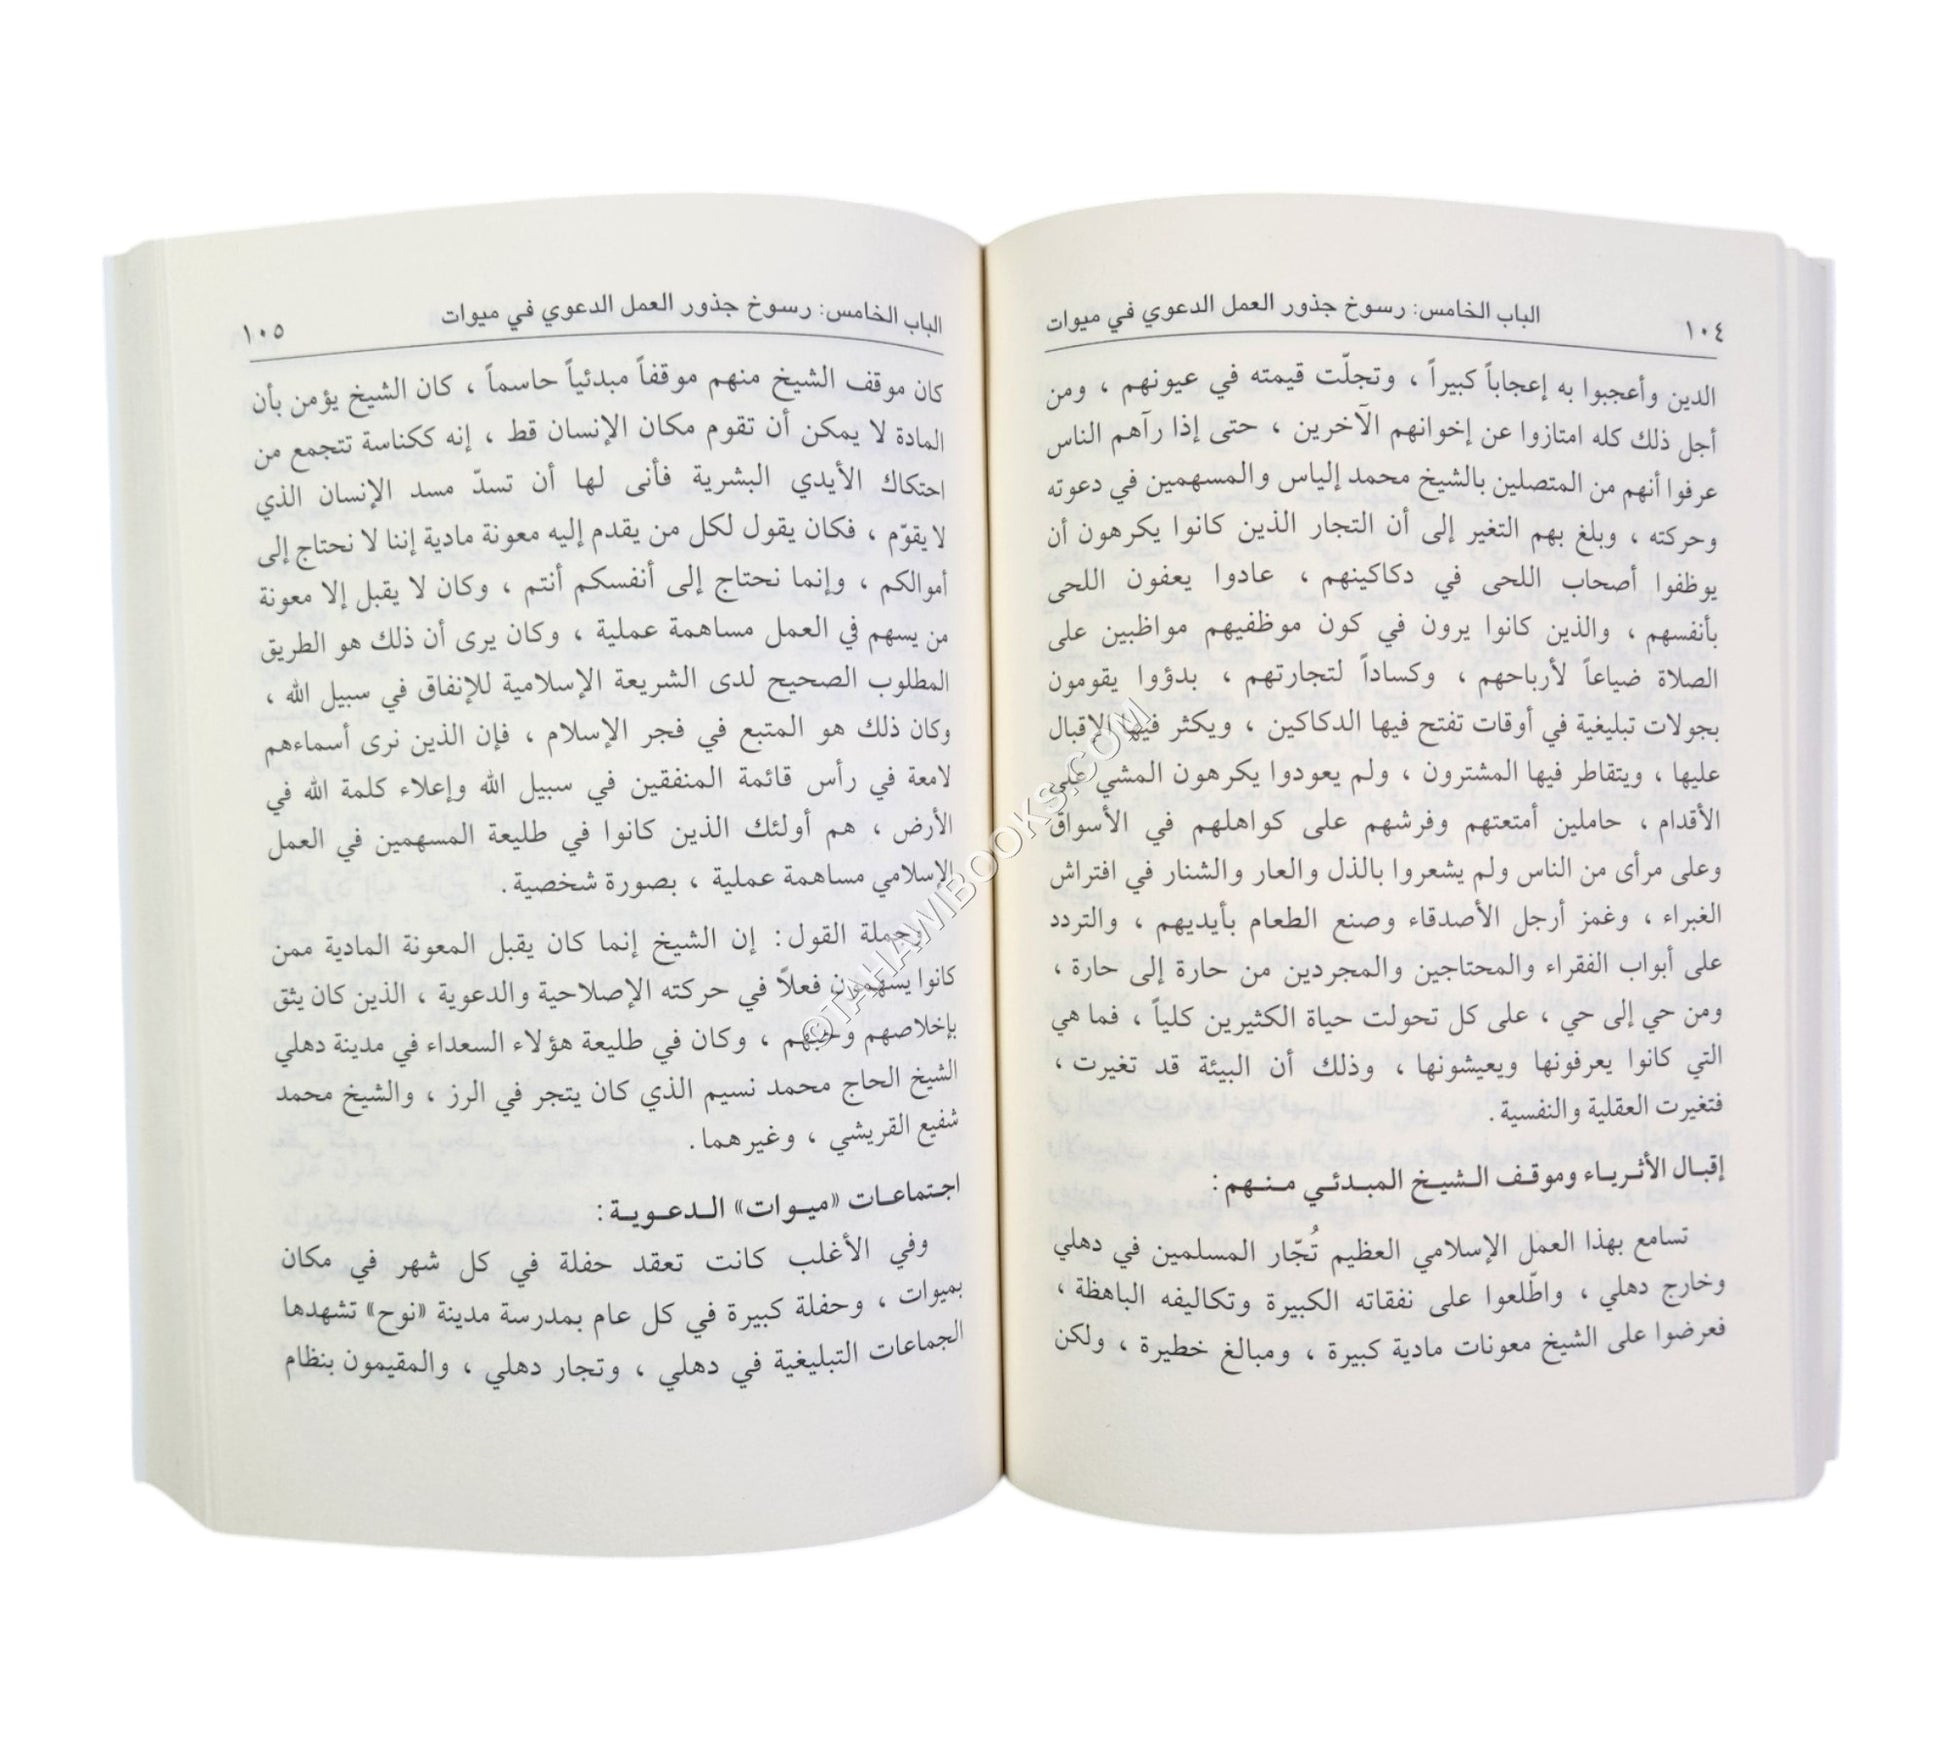 ١٠٤ الباب الخامس: رسوخ جذور العمل الدعوي في ميوات
الدين وأعجبوا به إعجاباً كبيراً ، وتجلّت قيمته في عيونهم ، ومن
أجل ذلك كله امتازوا عن إخوانهم الآخرين ، حتى إذا رآهم الناس
عرفوا أنهم من المتصلين بالشيخ محمد إلياس والمسهمين في دعوته
وحركته ، وبلغ بهم التغير إلى أن التجار الذين كانوا يكرهون أن
يوظفوا أصحاب اللحى في دكاكينهم ، عادوا يعفون اللحى
بأنفسهم ، والذين كانوا يرون في كون موظفيهم مواظبين على
الصلاة ضياعاً لأرباحهم ، وكساداً لتجارتهم ، بدؤوا يقومون
بجولات تبليغية في أوقات تفتح فيها الدكاكين ، ويكثر فيها الإقبال
عليها ، ويتقاطر فيها المشترون ، ولم يعودوا يكرهون المشي على
الأقدام ، حاملين أمتعتهم وفرشهم على كواهلهم في الأسواق
وعلى مرأى من الناس ولم يشعروا بالذل والعار والشنار في افتراش
الغبراء ، وغمز أرجل الأصدقاء وصنع الطعام بأيديهم ، والتردد
على أبواب الفقراء والمحتاجين والمجردين من حارة إلى حارة ،
ومن حي إلى حي ، على كل تحولت حياة الكثيرين كلياً ، فما هي
التي كانوا يعرفونها ويعيشونها ، وذلك أن البيئة قد تغيرت ،
فتغيرت العقلية والنفسية.
إقبال الأثرياء وموقف الشيخ المبدئي منهم:
تسامع بهذا العمل الإسلامي العظيم تُجّار المسلمين في دهلي
وخارج دهلي ، واطّلعوا على نفقاته الكبيرة وتكاليفه الباهظة ،
فعرضوا على الشيخ معونات مادية كبيرة ، ومبالغ خطيرة ، ولكن
الباب الخامس: رسوخ جذور العمل الدعوي في ميوات ١٠٥
كان موقف الشيخ منهم موقفاً مبدئياً حاسماً ، كان الشيخ يؤمن بأن
المادة لا يمكن أن تقوم مكان الإنسان قط ، إنه ككناسة تتجمع من
احتكاك الأيدي البشرية فأنى لها أن تسدّ مسد الإنسان الذي
لا يقوّم ، فكان يقول لكل من يقدم إليه معونة مادية إننا لا نحتاج إلى
أموالكم ، وإنما نحتاج إلى أنفسكم أنتم ، وكان لا يقبل إلا معونة
من يسهم في العمل مساهمة عملية ، وكان يرى أن ذلك هو الطريق
المطلوب الصحيح لدى الشريعة الإسلامية للإنفاق في سبيل الله ،
وكان ذلك هو المتبع في فجر الإسلام ، فإن الذين نرى أسماءهم
لامعة في رأس قائمة المنفقين في سبيل الله وإعلاء كلمة الله في
الأرض ، هم أولئك الذين كانوا في طليعة المسهمين في العمل
الإسلامي مساهمة عملية ، بصورة شخصية.
وجملة القول: إن الشيخ إنما كان يقبل المعونة المادية ممن
كانوا يسهمون فعلاً في حركته الإصلاحية والدعوية ، الذين كان يثق
بإخلاصهم وحبهم ، وكان في طليعة هؤلاء السعداء في مدينة دهلي
الشيخ الحاج محمد نسيم الذي كان يتجر في الرز ، والشيخ محمد
شفيع القريشي ، وغيرهما.
اجتماعات «ميوات» الدعوية:
وفي الأغلب كانت تعقد حفلة في كل شهر في مكان
بميوات ، وحفلة كبيرة في كل عام بمدرسة مدينة «نوح» تشهدها
الجماعات التبليغية في دهلي ، وتجار دهلي ، والمقيمون بنظام
©TAHAWIBOOKS.COM